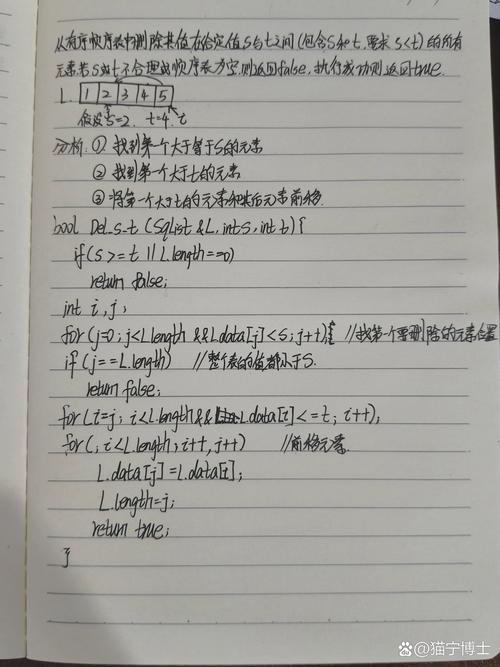 从有序顺序表中删除其值在给定值s与t之间(包含s和t,要求s<t)的所有
元素,若s或t不合理或顺序表为空,则返回false,执行成功则返回true.
L. 1 2 3 4 5
假设s=2. t=4. t
分析: ① 找到第一个大于等于s的元素
② 找到第一个大于t的元素
③ 将第一个大于t的元素和其后元素前移.
bool Del_s_t (SqList &L, int s, int t) {
if(s >= t || L.length==0)
return false;
int i, j;
for (j=0; j<L.length && L.data[j]<s; j++); //找第一个要删除的元素位置
if (j==L.length) //整个表的值都小于s.
return false;
for(i=j; i<L.length && L.data[i]<=t; i++);
for(; i<L.length; i++, j++) //前移元素.
L.data[j]=L.data[i];
L.length=j;
return true;
}
百家号@猫宁博士